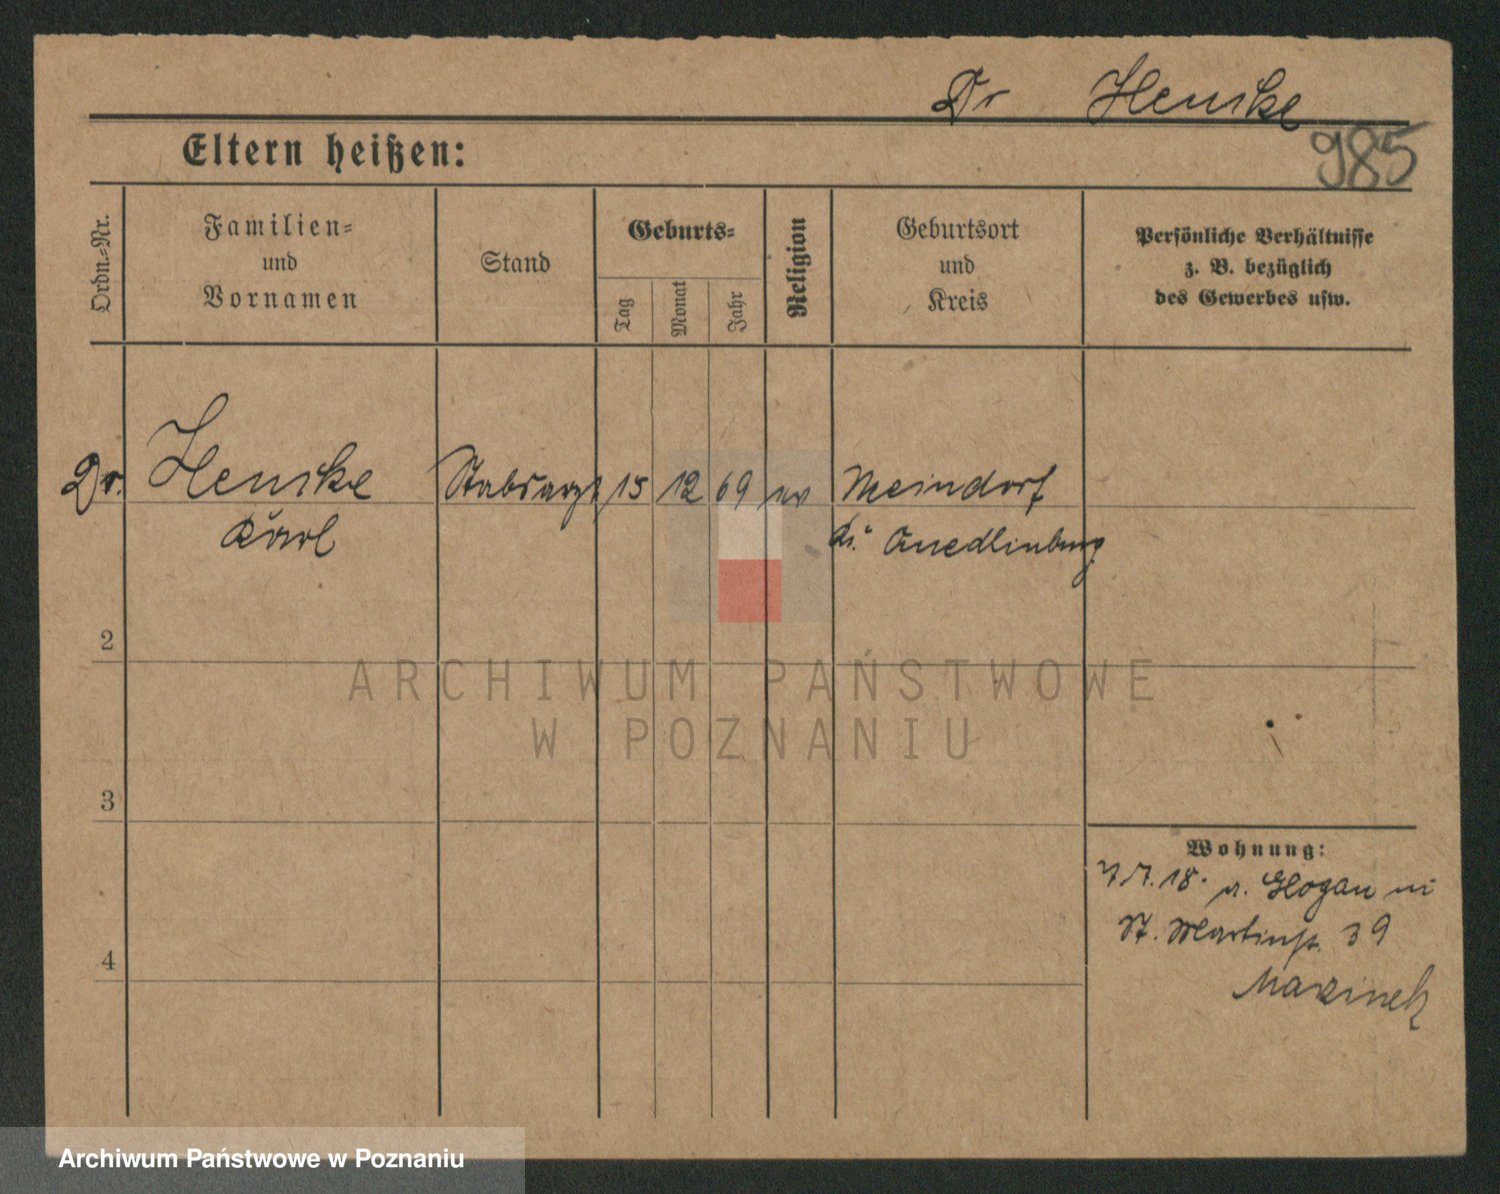 Dr Henske
985
Eltern heißen:
Ordn.-Nr.
Familien-
und
Vornamen
Stand
Geburts-
Tag
Monat
Jahr
Religion
Geburtsort
und
Kreis
Persönliche Verhältnisse
z. B. bezüglich
des Gewerbes usw.
Dr. Henske Stabsarzt 15 12 69 ev Meindorf
Karl Kr. Quedlinburg
2
3
4
Wohnung:
7.7.18. v. Glogau in
St. Martinstr. 39
Mazinek
ARCHIWUM PAŃSTWOWE
W POZNANIU
Archiwum Państwowe w Poznaniu